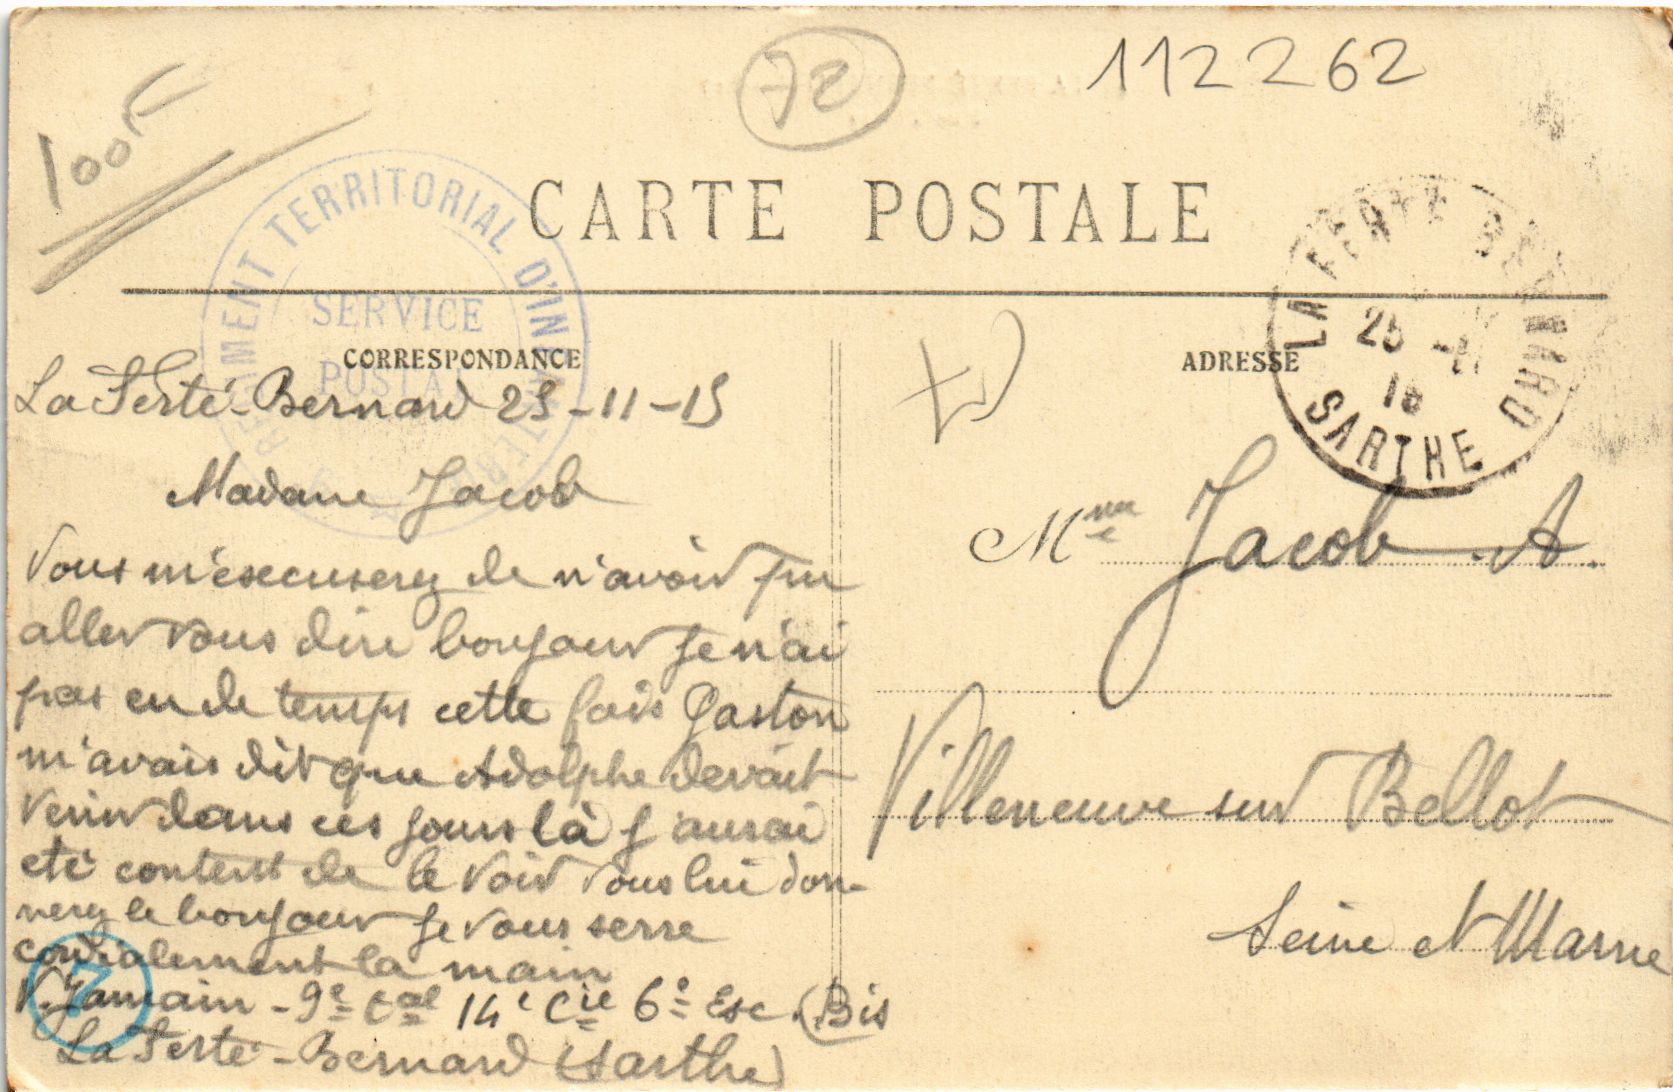 100F
72
112262
CARTE POSTALE
RÉGIMENT TERRITORIAL D'INFANTERIE
SERVICE
POSTAL
LA FERTE BERNARD
25 - 11
15
SARTHE
CORRESPONDANCE
ADRESSE
La Ferté-Bernard 25-11-15
Madame Jacob
Vous m'esecuserez de n'avoir pu
aller vous dire bonjour je n'ai
pas eu de temps cette fois Gaston
m'avais dit que Adolphe devait
venir dans ces jours là j'aurai
eté content de le voir vous lui don-
nerez le bonjour je vous serre
cordialement la main
V. Jamain - 9e Cal 14e Cie 6e Esc. (Bis
La Ferté-Bernard (Sarthe)
Mme Jacob A.
Villeneuve sur Bellot
Seine et Marne